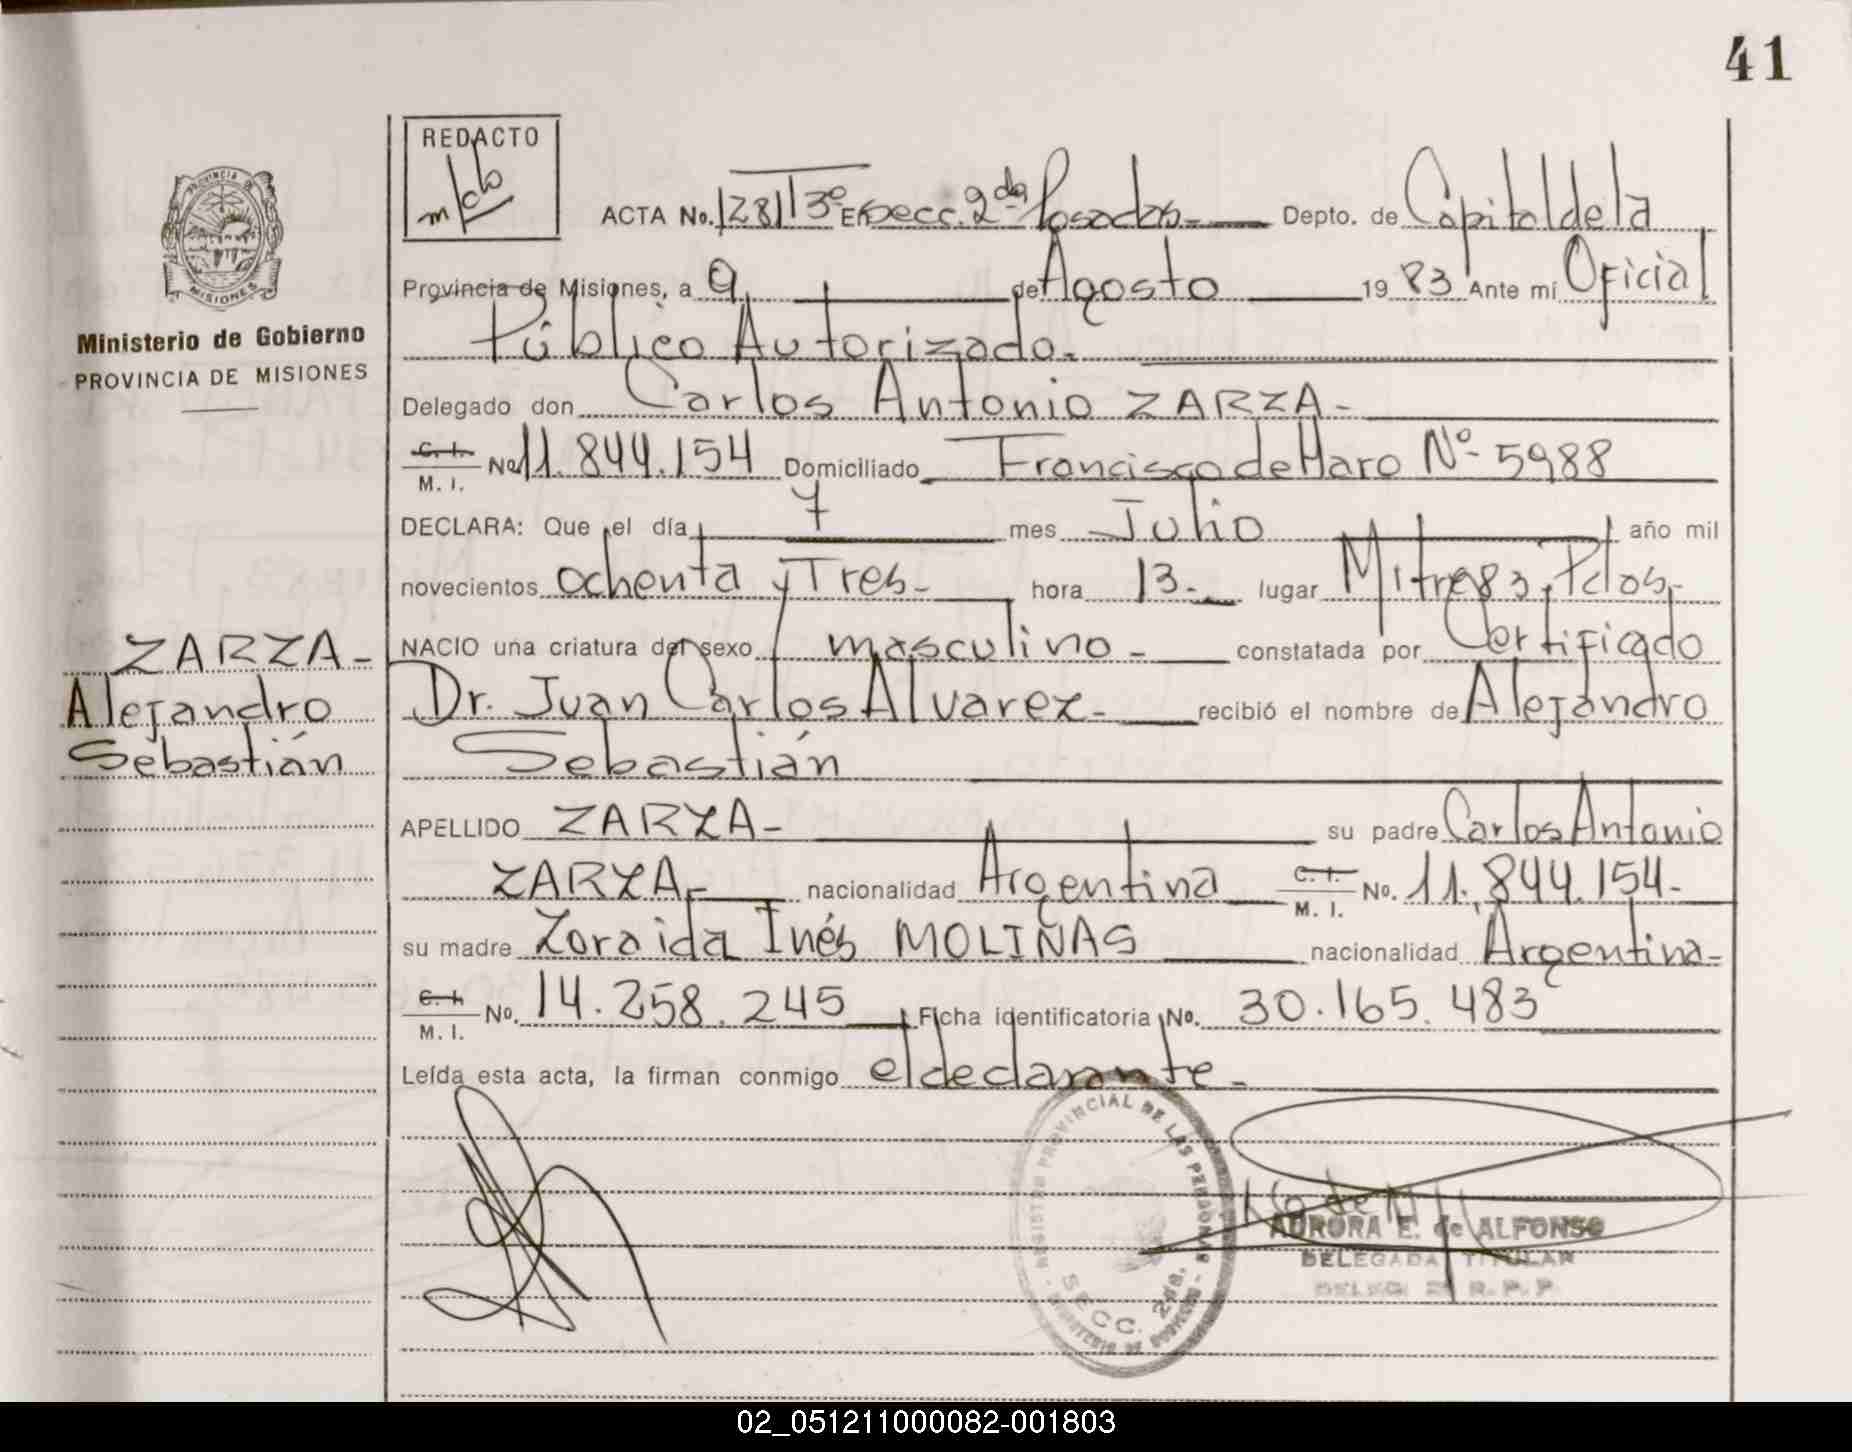 41
REDACTO
ACTA No. 1281 T3º En secc. 2da Posadas.- Depto. de Capital de la
Provincia de Misiones, a 9 de Agosto 19 83 Ante mí Oficial
Público Autorizado.
PROVINCIA DE
MISIONES
Ministerio de Gobierno
PROVINCIA DE MISIONES
Delegado don Carlos Antonio ZARZA-
C. I. M. I. No. 11.844.154 Domiciliado Francisco de Haro Nº- 5988
DECLARA: Que el día 7 mes Julio año mil
novecientos ochenta y Tres- hora 13.- lugar Mitre 83, Pdas.-
ZARZA-
Alejandro
Sebastián
NACIO una criatura del sexo masculino - constatada por Certificado
Dr. Juan Carlos Alvarez- recibió el nombre de Alejandro
Sebastián
APELLIDO ZARZA- su padre Carlos Antonio
ZARZA- nacionalidad Argentina C. I. M. I. No. 11.844.154-
su madre Zoraida Inés MOLIÑAS nacionalidad Argentina-
C. I. M. I. No. 14.258.245 Ficha identificatoria No. 30.165.483
Leída esta acta, la firman conmigo el declarante-
REGISTRO PROVINCIAL DE LAS PERSONAS
SECC. 2da.
MINISTERIO DE GOBIERNO
AURORA E. de ALFONSO
DELEGADA TITULAR
R. P. P.
02_051211000082-001803